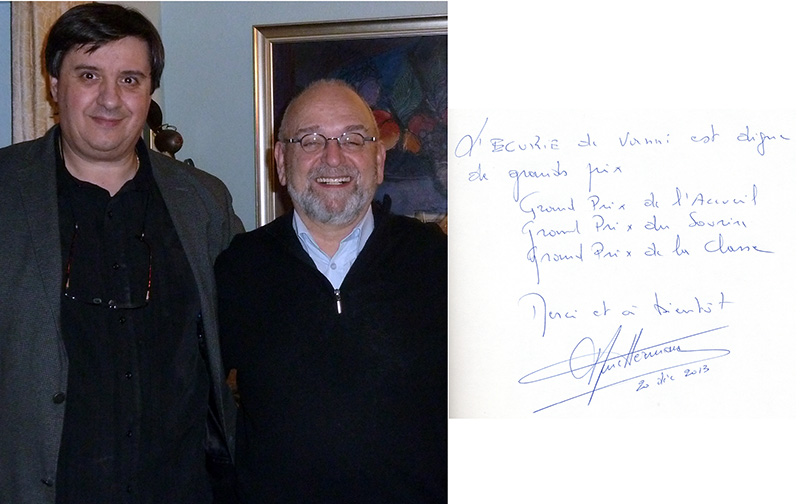 L'ECURIE de Vanni est digne
de grands prix
Grand Prix de l'Accueil
Grand Prix du Sourire
Grand Prix de la Classe
Merci et à bientôt
20 déc 2013